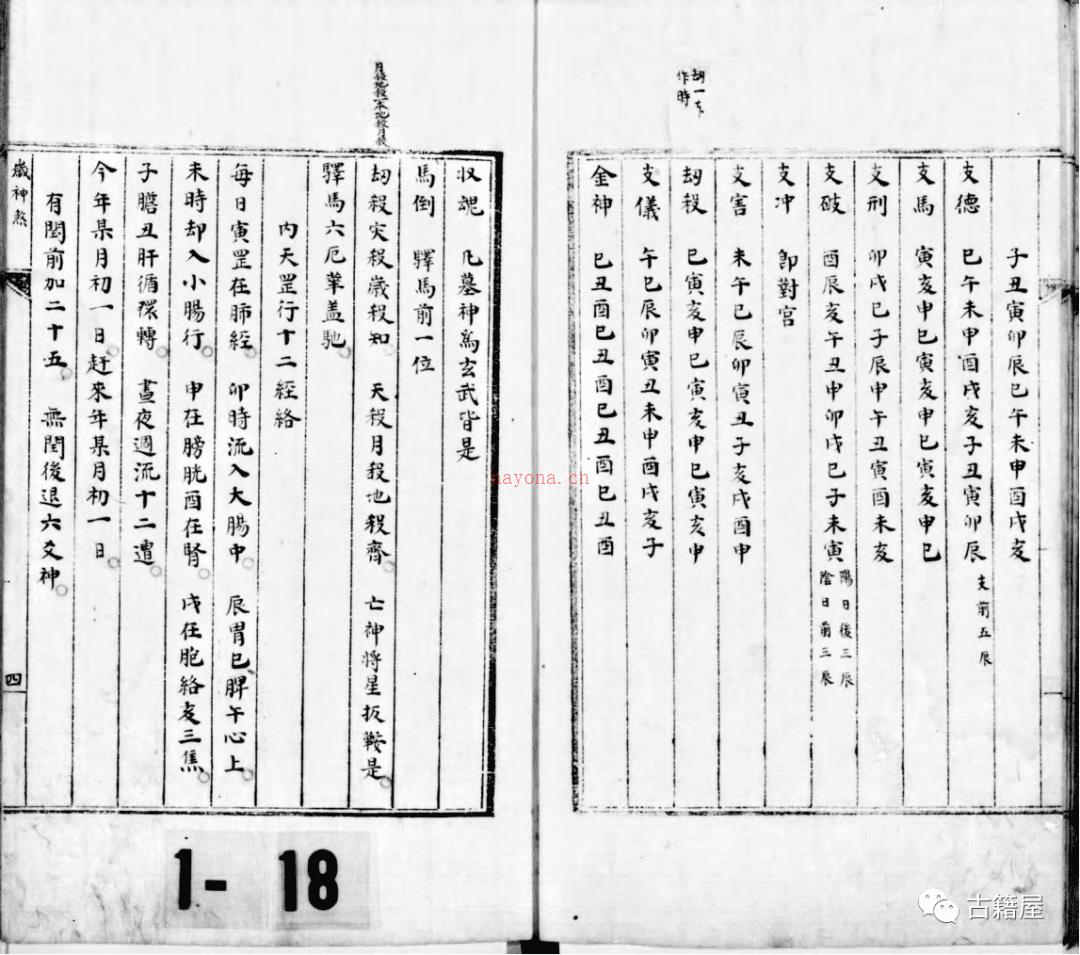 子丑寅卯辰巳午未申酉戌亥
支德　巳午未申酉戌亥子丑寅卯辰　支前五辰
支馬　寅亥申巳寅亥申巳寅亥申巳
支刑　卯戌巳子辰申午丑寅酉未亥
支破　酉辰亥午丑申卯戌巳子未寅　陽日後三辰
陰日前三辰
支冲　卽對宮
支害　未午巳辰卯寅丑子亥戌酉申
刼殺　巳寅亥申巳寅亥申巳寅亥申
支儀　午巳辰卯寅丑未申酉戌亥子
金神　巳丑酉巳丑酉巳丑酉巳丑酉
作時
收魂　凡墓神爲玄武皆是
馬倒　驛馬前一位
月殺地殺一本地殺月殺
刼殺灾殺歲殺知　天殺月殺地殺齊　亡神將星扳鞍是
驛馬六厄華盖馳
内天罡行十二經絡
每日寅罡在肺經　卯時流入大腸中　辰胃巳脾午心上
未時却入小腸行　申在膀胱酉在腎　戌在胞絡亥三焦
子膽丑肝循環轉　晝夜週流十二遭
今年某月初一日赶來年某月初一日
有閏前加二十五　無閏後退六爻神
歲神煞
四
1- 18
nayona.ch
古籍屋